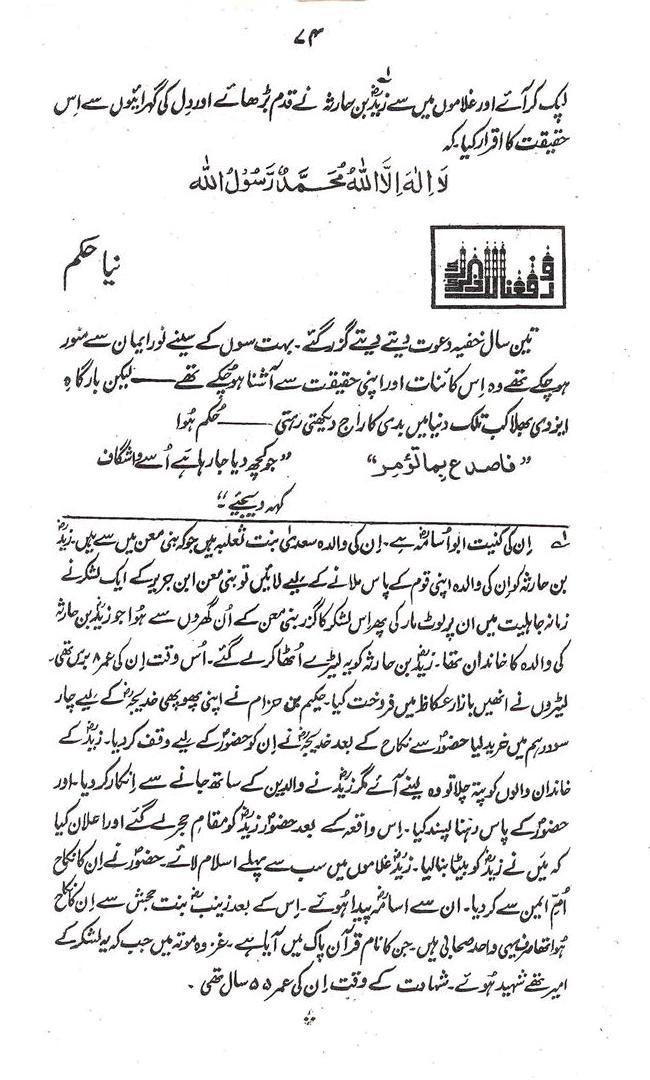 ۷۴
لپک کر آئے اور غلاموں میں سے زیدؓ۱ بن حارثہ نے قدم بڑھائے اور دل کی گہرائیوں سے اس
حقیقت کا اقرار کیا۔ کہ
لَا اِلٰہَ اِلَّا اللہُ مُحَمَّدٌ رَّسُوْلُ اللہ
ورفعنا لک ذکرک
نیا حکم
تین سال خفیہ دعوت دیتے دیتے گزر گئے۔ بہت سوں کے سینے نور ایمان سے منور
ہو چکے تھے وہ اس کائنات اور اپنی حقیقت سے آشنا ہو چکے تھے —— لیکن بارگاہِ
ایزدی بھلا کب تلک دنیا میں بدی کا راج دیکھتی رہتی —— حُکم ہُوا
”فاصدع بما تؤمر“ ”جو کچھ دیا جا رہا ہے اُسے واشگاف
کہہ دیجئیے“
۱؎ اِن کی کنیت ابو اُسامہؓ ہے۔ اِن کی والدہ سعدیٰ بنت ثعلبہ ہیں جو کہ بنی معن میں سے ہیں۔ زیدؓ
بن حارثہ کو ان کی والدہ اپنی قوم کے پاس ملانے کے لیے لائیں تو بنی معن ابن جریر کے ایک لشکر نے
زمانہ جاہلیت میں ان پر لوٹ مار کی پھر اس لشکر کا گزر بنی معن کے اُن گھروں سے ہوا جو زیدؓ بن حارثہ
کی والدہ کا خاندان تھا۔ زیدؓ بن حارثہ کو یہ لیٹرے اُٹھا کر لے گئے۔ اُس وقت اِن کی عمر ۸ برس تھی۔
لیٹروں نے انھیں بازار عکاظ میں فروخت کیا۔ حکیم بن حزام نے اپنی پھوپھی خدیجہؓ کے لیے چار
سو درہم میں خرید لیا حضورؐ سے نکاح کے بعد خدیجہؓ نے ان کو حضورؐ کے لیے وقف کر دیا۔ زیدؓ کے
خاندان والوں کو پتہ چلا تو وہ لینے آئے مگر زیدؓ نے والدین کے ساتھ جانے سے انکار کر دیا۔ اور
حضورؐ کے پاس رہنا پسند کیا۔ اِس واقعہ کے بعد حضورؐ زیدؓ کو مقام حجر لے گئے اور اعلان کیا
کہ میں نے زیدؓ کو بیٹا بنا لیا۔ زیدؓ غلاموں میں سب سے پہلے اسلام لائے۔ حضورؐ نے اِن کا نکاح
اُمّ ایمن سے کر دیا۔ ان سے اسامہؓ پیدا ہُوئے۔ اِس کے بعد زینبؓ بنت جحش سے اِن کا نکاح
ہُوا تھا۔ یہی واحد صحابی ہیں۔ جن کا نام قرآن پاک میں آیا ہے۔ غزوہ موتہ میں جب کہ یہ لشکر کے
امیر تھے شہید ہُوئے۔ شہادت کے وقت اِن کی عمر ۵۵ سال تھی۔